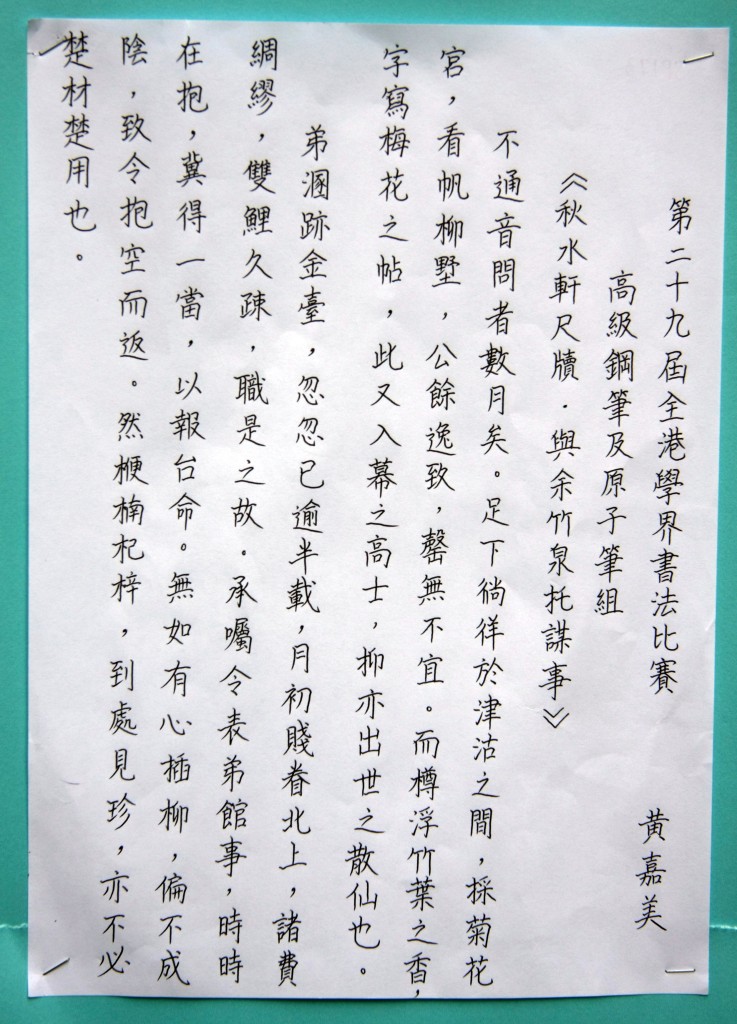 第二十九屆全港學界書法比賽
高級鋼筆及原子筆組
黃嘉美
《秋水軒尺牘．與余竹泉托謀事》
不通音問者數月矣。足下徜徉於津沽之間，採菊花
宮，看帆柳墅，公餘逸致，罄無不宜。而樽浮竹葉之香，
字寫梅花之帖，此又入幕之高士，抑亦出世之散仙也。
弟溷跡金臺，忽忽已逾半載，月初賤眷北上，諸費
綢繆，雙鯉久疎，職是之故。承囑令表弟館事，時時
在抱，冀得一當，以報台命。無如有心插柳，偏不成
陰，致令抱空而返。然楩楠杞梓，到處見珍，亦不必
楚材楚用也。